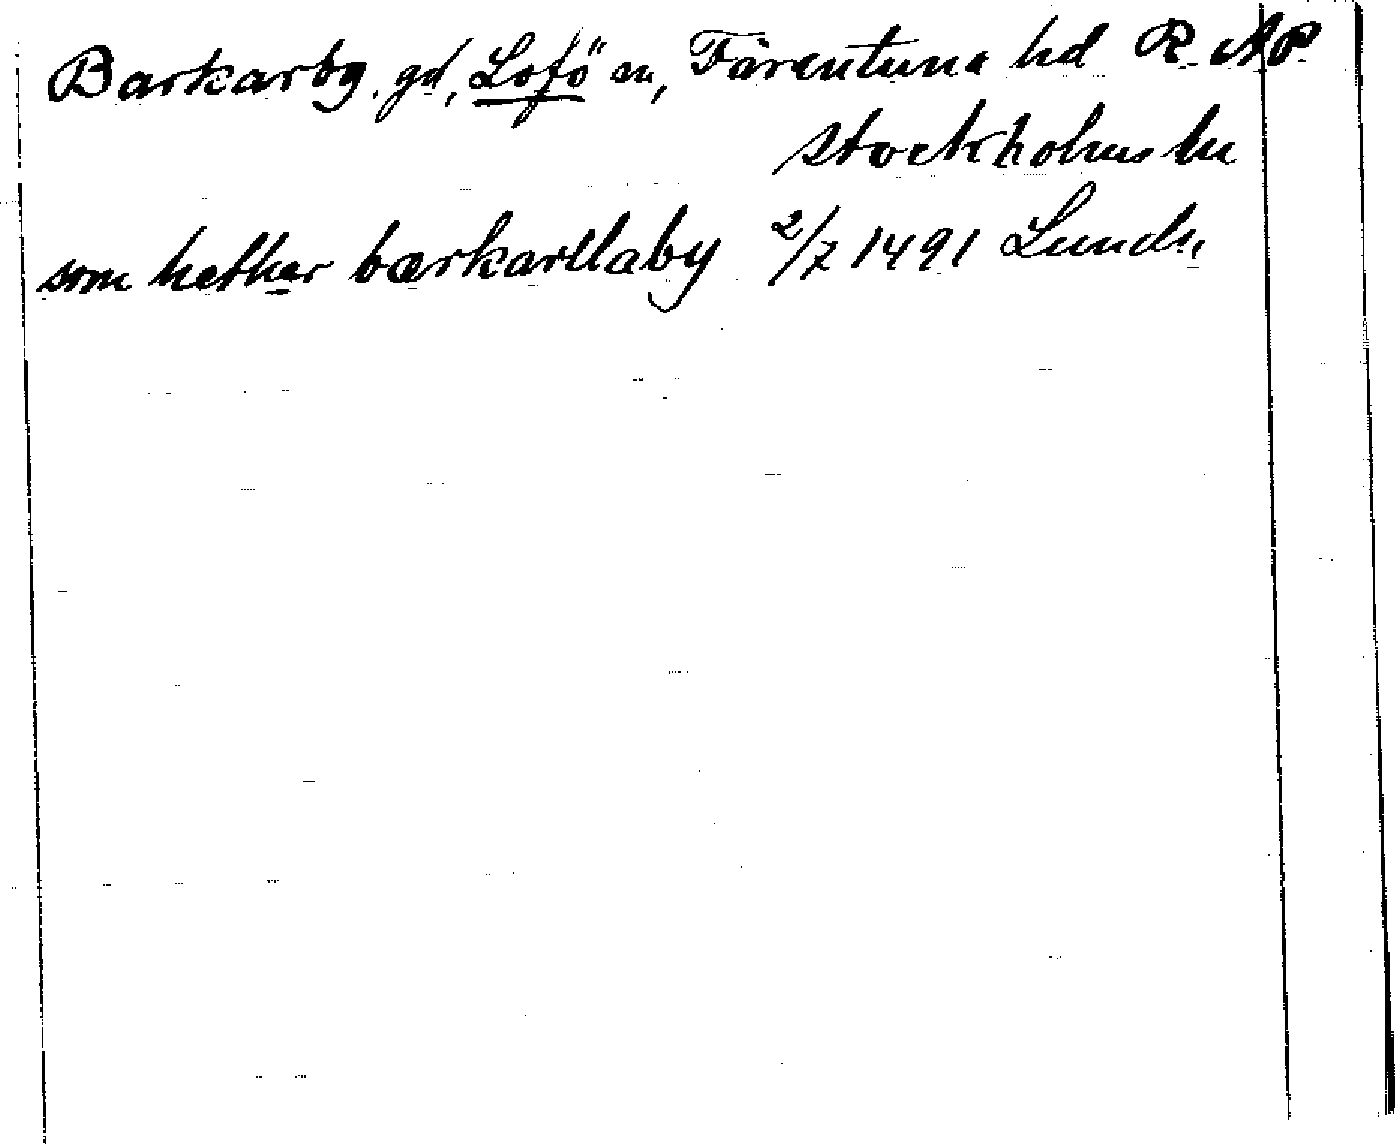 Barkarby. gd, Lofö sn, Färentuna hd R. A P.
Stockholms län
som hether bærkarllaby 2/7 1491 Lunds.